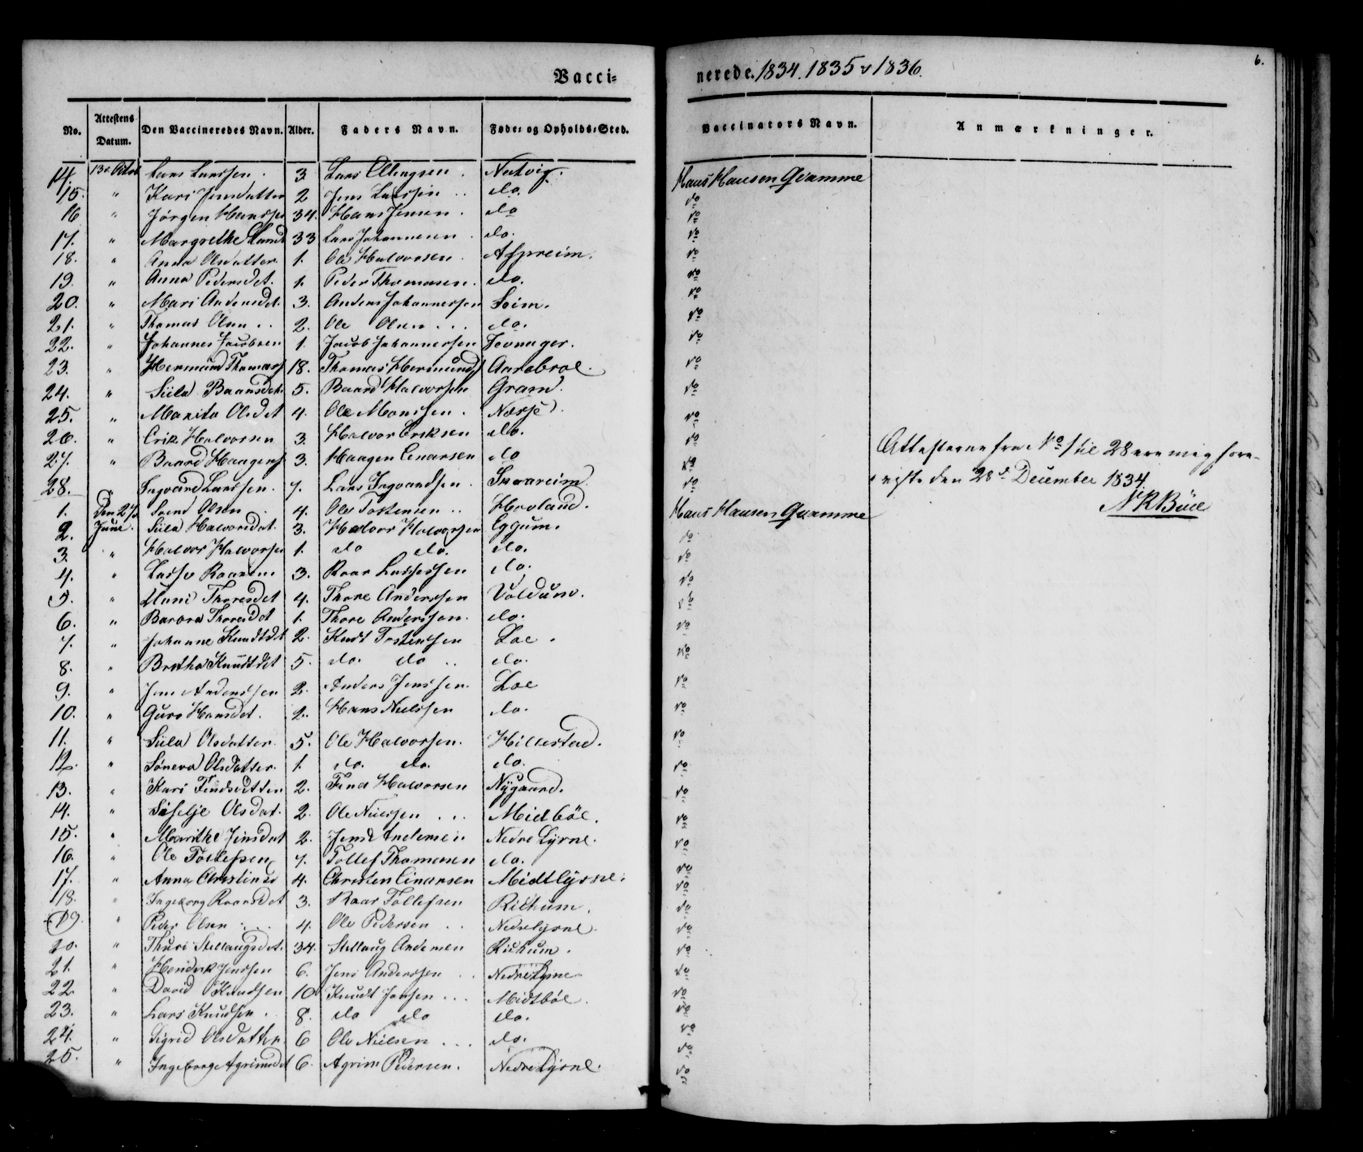 Vacci=
nerede. 1834. 1835 & 1836.
6.
No. Attestens Datum. Den Vaccineredes Navn. Alder. Faders Navn. Føde- og Opholds-Sted. Vaccinators Navn. Anmærkninger.
14. 13e Lars Larssen. 3 Lars Ellingsen. Nedvig. Hans Hansen Gvamme
15. " Kari Jensdatter 2 Jens Larssen do. do
16 " Jørgen Hanssen 34. Hans Jensen. do do
17. " Margrethe 33 Lars Johannesen do. do
18. " Anna Olsdatter 1. Ole Halvorsen. do
19. " Anna Pedersdet. 1. Peder Thomassen. do. do
20. " Mari Andersdet. 3. Anders Johannessen Seim. do
21. " Thomas Olsen .. 2. Ole Olsen ... do. do
22. " Johannes Jacobsen 1. Jacob Johannessen do
23. " Hermund Thomas 18. Thomas Hermunds do
24. " Siila 5. Baard Halvorsen Gram. do
25. " Marita Olsdet 4. Ole Monssen. do
26 " Erik Halvorsen 3. Halvor Eriksen do. do
27. " Baard Haagens 3. Haagen Einarsen do do
28. " Ingvard Larssen. 7. Lars Ingvardsen. do
Attesterne fra No 1 til 28 ere mig fore-
viste den 28d December 1834
1. Den 27 Svend Olsen 4. Ole Hovland. Hans Hansen Gvamme
2. Juni. Siila Halvorsdat. 3. Halvor Halvorsen Eggum. do
3. " Halvor Halvorsen 1. do do. do. do
4. " Lasse Roarsen 3. Roar Lassessen do. do
5. " Thoresdet 4. Thore Anderssen Voldum. do
6. " Barbra Thoresdat 1. Thore Anderssen. do. do
7. " Johanne Knudtdet 2. Knudt Torstenssen Loe. do
8. " Brithe Knudtdet 5. do. do .. do.
9. " Jens Anderssen 2. Anders Jenssen. Loe do
10. " Guro Hansdet. 2. Hans Nielssen do. do
11. " Siila Olsdatter. 5. Ole Halvorsen. Hillestad. do
12. " Søneva Olsdatter. 1. do. do. do. do
13. " Kari 2. Halvorsen Nygaard. do
14. " Olsdat. 2. Ole Nielssen ... Midtbøe. do
15. " Marithe Jensdat 2. Jens Andersen Nedre Lyrne. do
16. " Ole Tollefsen 7. Tollef Thomassen do. do
17. " Anna 4. Christen Einarsen Midtlyrne. do
18. " Ingeborg Roarsdet 3. Roar Tollefsen do
19. " Peder Olsen 4. Ole Pedersen .. Nedrelyrne. do
20. " Thuri Stellaugsdat. 34. Stellaug Andersen do
21. " Hendrik Jenssen 6. Jens Anderssen .. Nedre Lyrne do
22 " David Knudsen 10 Knudt Jensen ... Midtbøe. do
23. " Lars Knudsen. 8. do do do. do
24. " Sigrid Olsdatter 6 Ole Nielsen ... do. do
25. " Ingeborg Agrimsdet 6. Agrim Pedersen. Nedre Lyrne. do